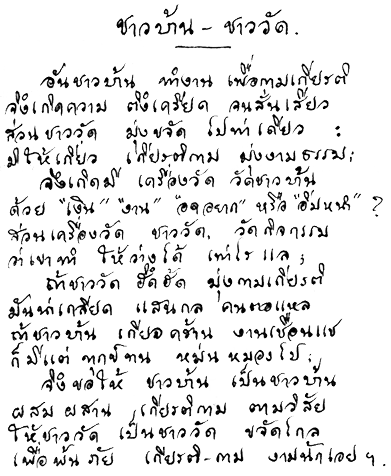 ชาวบ้าน – ชาววัด.
อันชาวบ้าน ทำงาน เพื่อกามเกียรติ
จึงเกิดความ ตึงเครียด จนสั่นเสียว
ส่วนชาววัด มุ่งขจัด ไปท่าเดียว :
มิให้เกี่ยว เกียรติกาม มุ่งงามธรรม;
จึงเกิดมี เครื่องวัด วัดชาวบ้าน
ด้วย "เงิน" "งาน" "อดอยาก" หรือ "อิ่มหนำ" ?
ส่วนเครื่องวัด ชาววัด, วัดกิจกรรม
ว่าเขาทำ ให้ว่างได้ เท่าไรแล;
ถ้าชาววัด ฮึดฮัด มุ่งกามเกียรติ
มันน่าเกลียด แสนกล คนตอแหล
ถ้าชาวบ้าน เกียจคร้าน งานเชือนแช
ก็มีแต่ ทุกข์ทน หม่นหมองไป;
จึงขอให้ ชาวบ้าน เป็นชาวบ้าน
ผสมผสาน เกียรติกาม ตามวิสัย
ให้ชาววัด เป็นชาววัด ขจัดไกล
เพื่อพ้นภัย เกียรติ-กาม งามนักเอย ฯ